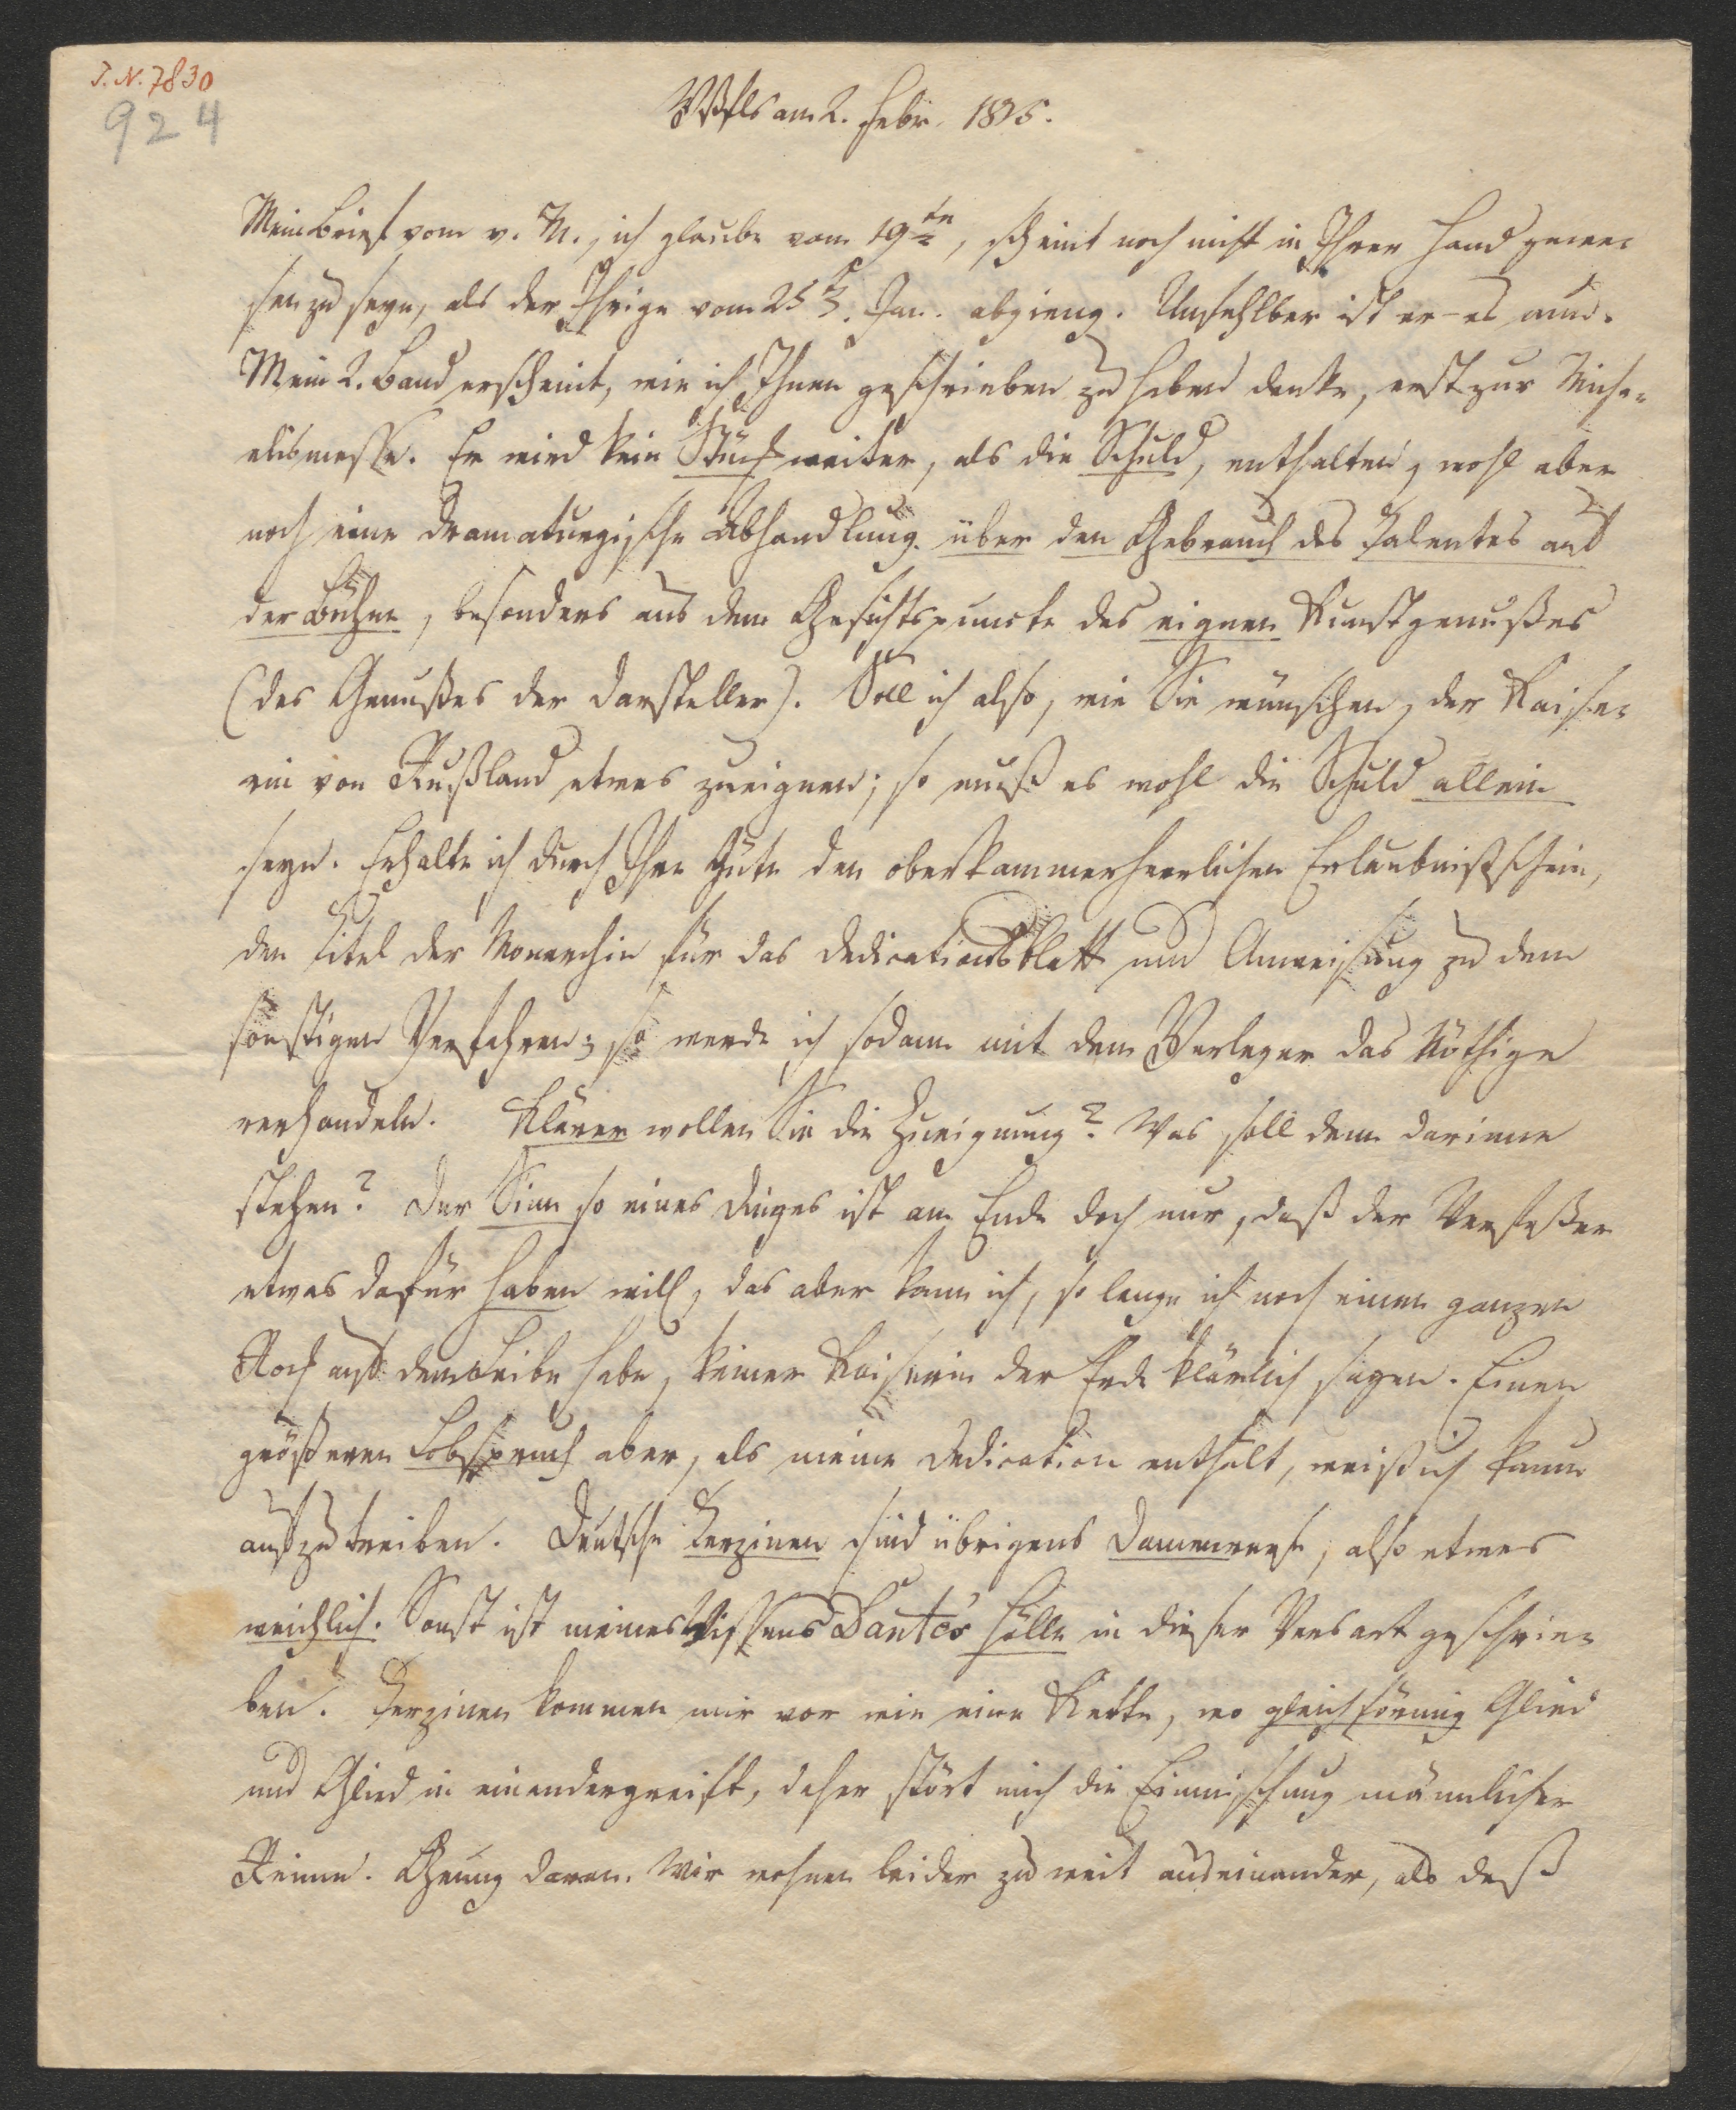 J. N. 7830
924
Wßfls am 2. Febr. 1815.
Mein Brief vom v. M., ich glaube vom 19ten, scheint noch nicht in Ihrer Hand gewe-
sen zu seyn, als der Ihrige vom 25 Jan. abgieng. Unfehlbar ist er es nun.
Mein 2. Band erscheint, wie ich Ihnen geschrieben zu haben denke, erst zur Micha-
elismesse. Er wird kein Stück weiter, als die Schuld, enthalten, wohl aber
noch eine dramaturgische Abhandlung über den Gebrauch des Talentes auf
der Bühne, besonders aus dem Gesichtspuncte des eignen Kunstgenußes
(des Genußes der Darsteller). Soll ich also, wie Sie wünschen, der Kaise-
rin von Rußland etwas zueignen; so muß es wohl die Schuld allein
seyn. Erhalte ich durch Ihre Güte den oberkammerherrlichen Erlaubnißschein,
den Titel der Monarchin für das Dedicationsblatt und Anweisung zu dem
sonstigen Verfahren; so werde ich sodann mit dem Verleger das Nöthige
verhandeln. Klärer wollen Sie die Zueignung? Was soll denn darinne
stehen? Der Sinn so eines Dinges ist am Ende doch nur, daß der Verfaßer
etwas dafür haben will, das aber kann ich, so lange ich noch einen ganzen
Rock auf dem Leibe habe, keiner Kaiserin der Erde klärlich sagen. Einen
größeren Lobspruch aber, als meine Dedication enthält, weiß ich kaum
aufzutreiben. Deutsche Terzinen sind übrigens Damenwerk, also etwas
weichlich. Sonst ist meines Wissens Dante's Hölle in dieser Versart geschrie-
ben. Terzinen kommen mir vor wie eine Kette, wo gleichförmig Glied
und Glied in einandergreift, daher stört mich die Einmischung männlicher
Reime. Genug davon. Wir wohnen leider zu weit auseinander, als daß